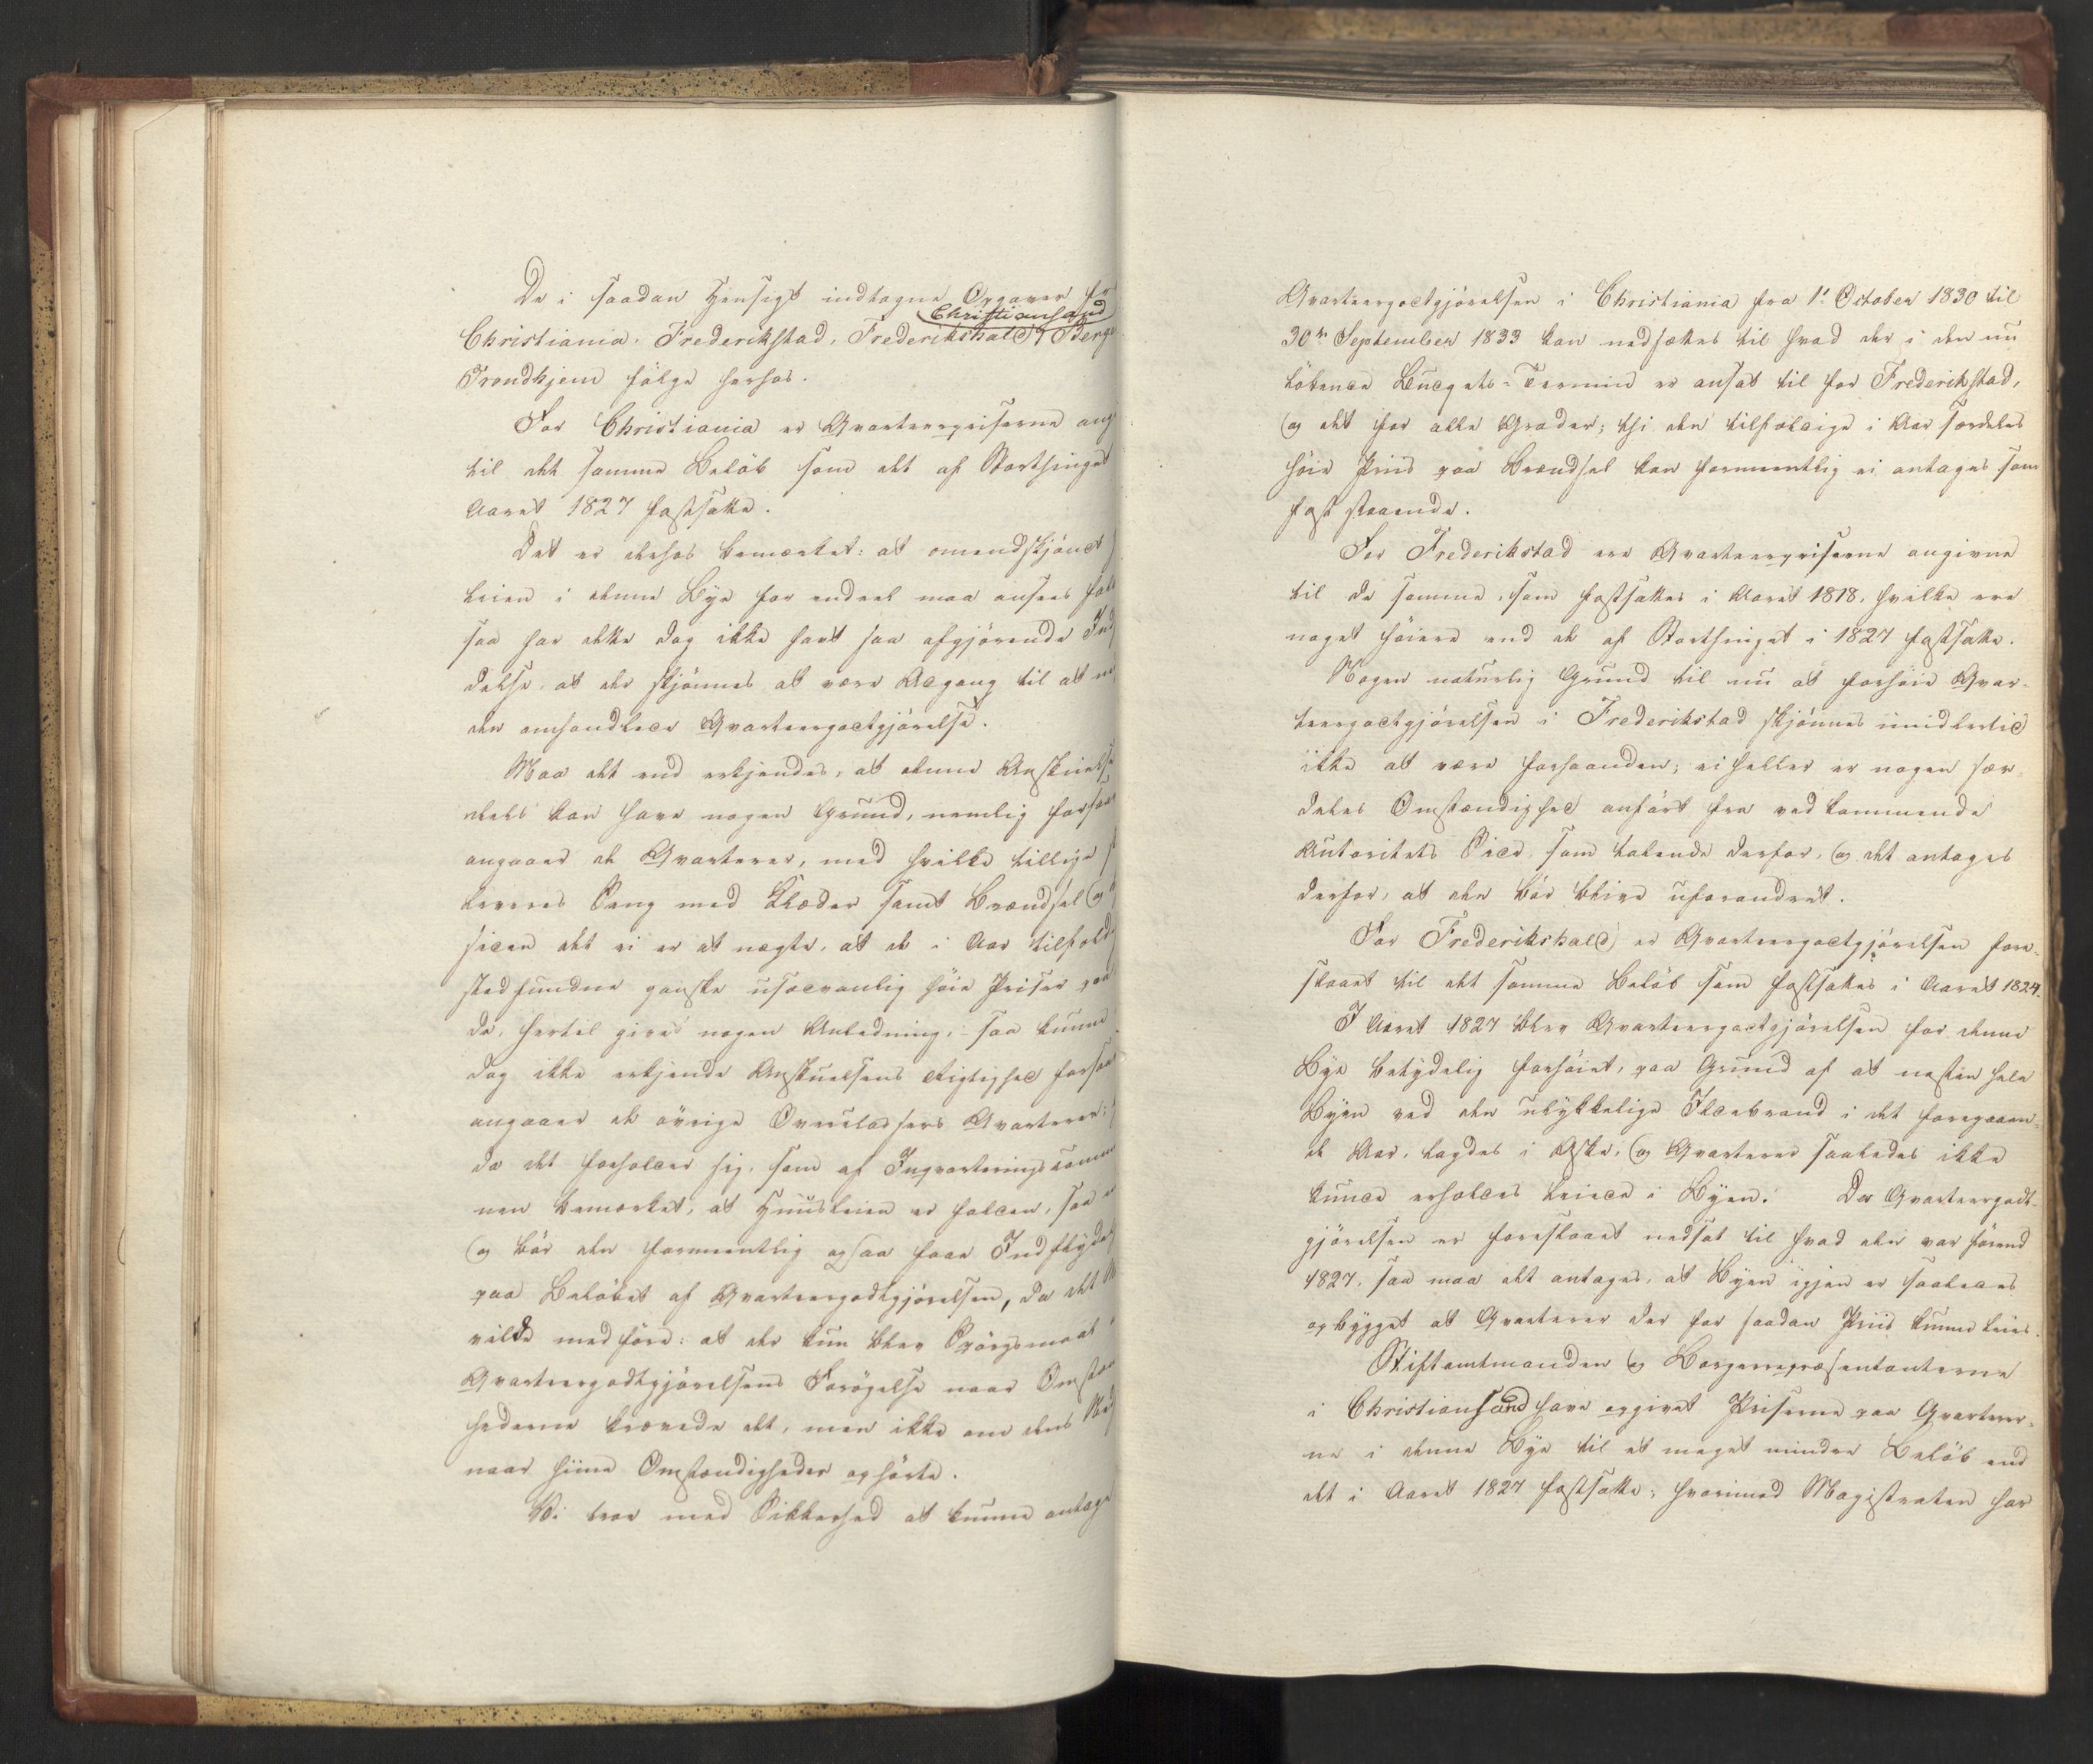 De i saadan Hensigt indtagne Opgaver fra
Christiansand
Christiania, Frederikstad, Frederikshald, Berge
Trondhjem følge herhos.
For Christiania er Qvarteerpriserne ang
til det samme Beløb som det af Storthinget
Aaret 1827 fastsatte.
Det er derhos bemærket: at omendskjøndt
leien i denne Bye for endeel maa ansees fald
saa har dette dog ikke havt saa afgjørende Ind
delse, at der skjønnes at være Adgang til at ne
den omhandlede Qvarteergodtgjørelse.
Maa det end erkjendes, at denne Anskuelse
deels kan have nogen Grund, nemlig forsaav
angaaer de Qvarterer, med hvilke tillige
leveres Seng med Klæder samt Brændsel og
siden det ei er at nægte, at de i Aar tilfæld
stedfundne ganske usædvanlig høie Priser paa
de, hertil give nogen Anledning, saa kunne
dog ikke erkjende Anskuelsens Rigtighed forsaa
angaaer de øvrige Overeladsers Qvarterer;
da det forholder sig, som af Inqvarteringscomm
nen bemærket, at Huusleien er falden, saa
og bør den formeentlig ogsaa faae Indflydel
paa Beløbet af Qvarteergodtgjørelsen, da det
vilde medføre: at der kun blev Spørgsmaal
Qvarteergodtgjørelsens Forøgelse naar Omstæn
hederne krævede det, men ikke om dens Ned
naar hiine Omstændigheder ophørte.
Vi troe med Sikkerhed at kunne antage
Qvarteergodtgjørelsen i Christiania fra 1ste October 1830 til
30te September 1833 kan nedsættes til hvad der i den nu
løbende Budgets-Termin er ansat til for Frederikstad,
og det for alle Grader; thi den tilfældige i Aar særdeles
høie Priis paa Brændsel kan formeentlig ei antages som
fast staaende.
For Frederikstad ere Qvarteerpriserne angivne
til de samme, som fastsattes i Aaret 1818, hvilke ere
noget høiere end de af Storthinget i 1827 fastsatte.
Nogen naturlig Grund til nu at forhøie Qvar-
teergodtgjørelsen i Frederikstad skjønnes imidlertid
ikke at være forhaanden; ei heller er nogen sær-
deles Omstændighed anført fra vedkommende
Autoritets Side, som talende derfor, og det antages
derfor, at den bør blive uforandret.
For Frederikshald er Qvarteergodtgjørelsen fore-
slaaet til det samme Beløb som fastsattes i Aaret 1824.
I Aaret 1827 blev Qvarteergodtgjørelsen for denne
Bye betydelig forhøiet, paa Grund af at næsten hele
Byen ved den ulykkelige Ildebrand i det foregaaen-
de Aar, lagdes i Aske, og Qvarterer saaledes ikke
kunde erholdes leiede i Byen. Da Qvarteergodt-
gjørelsen er foreslaaet nedsat til hvad den var førend
1827, saa maa det antages, at Byen igjen er saaledes
opbygget at Qvarterer der for saadan Priis kunne leies.
Stiftamtmanden og Borgerrepræsentanterne
i Christiansand have opgivet Priserne paa Qvarterer-
ne i denne Bye til et meget mindre Beløb end
det i Aaret 1827 fastsatte; hvorimod Magistraten har